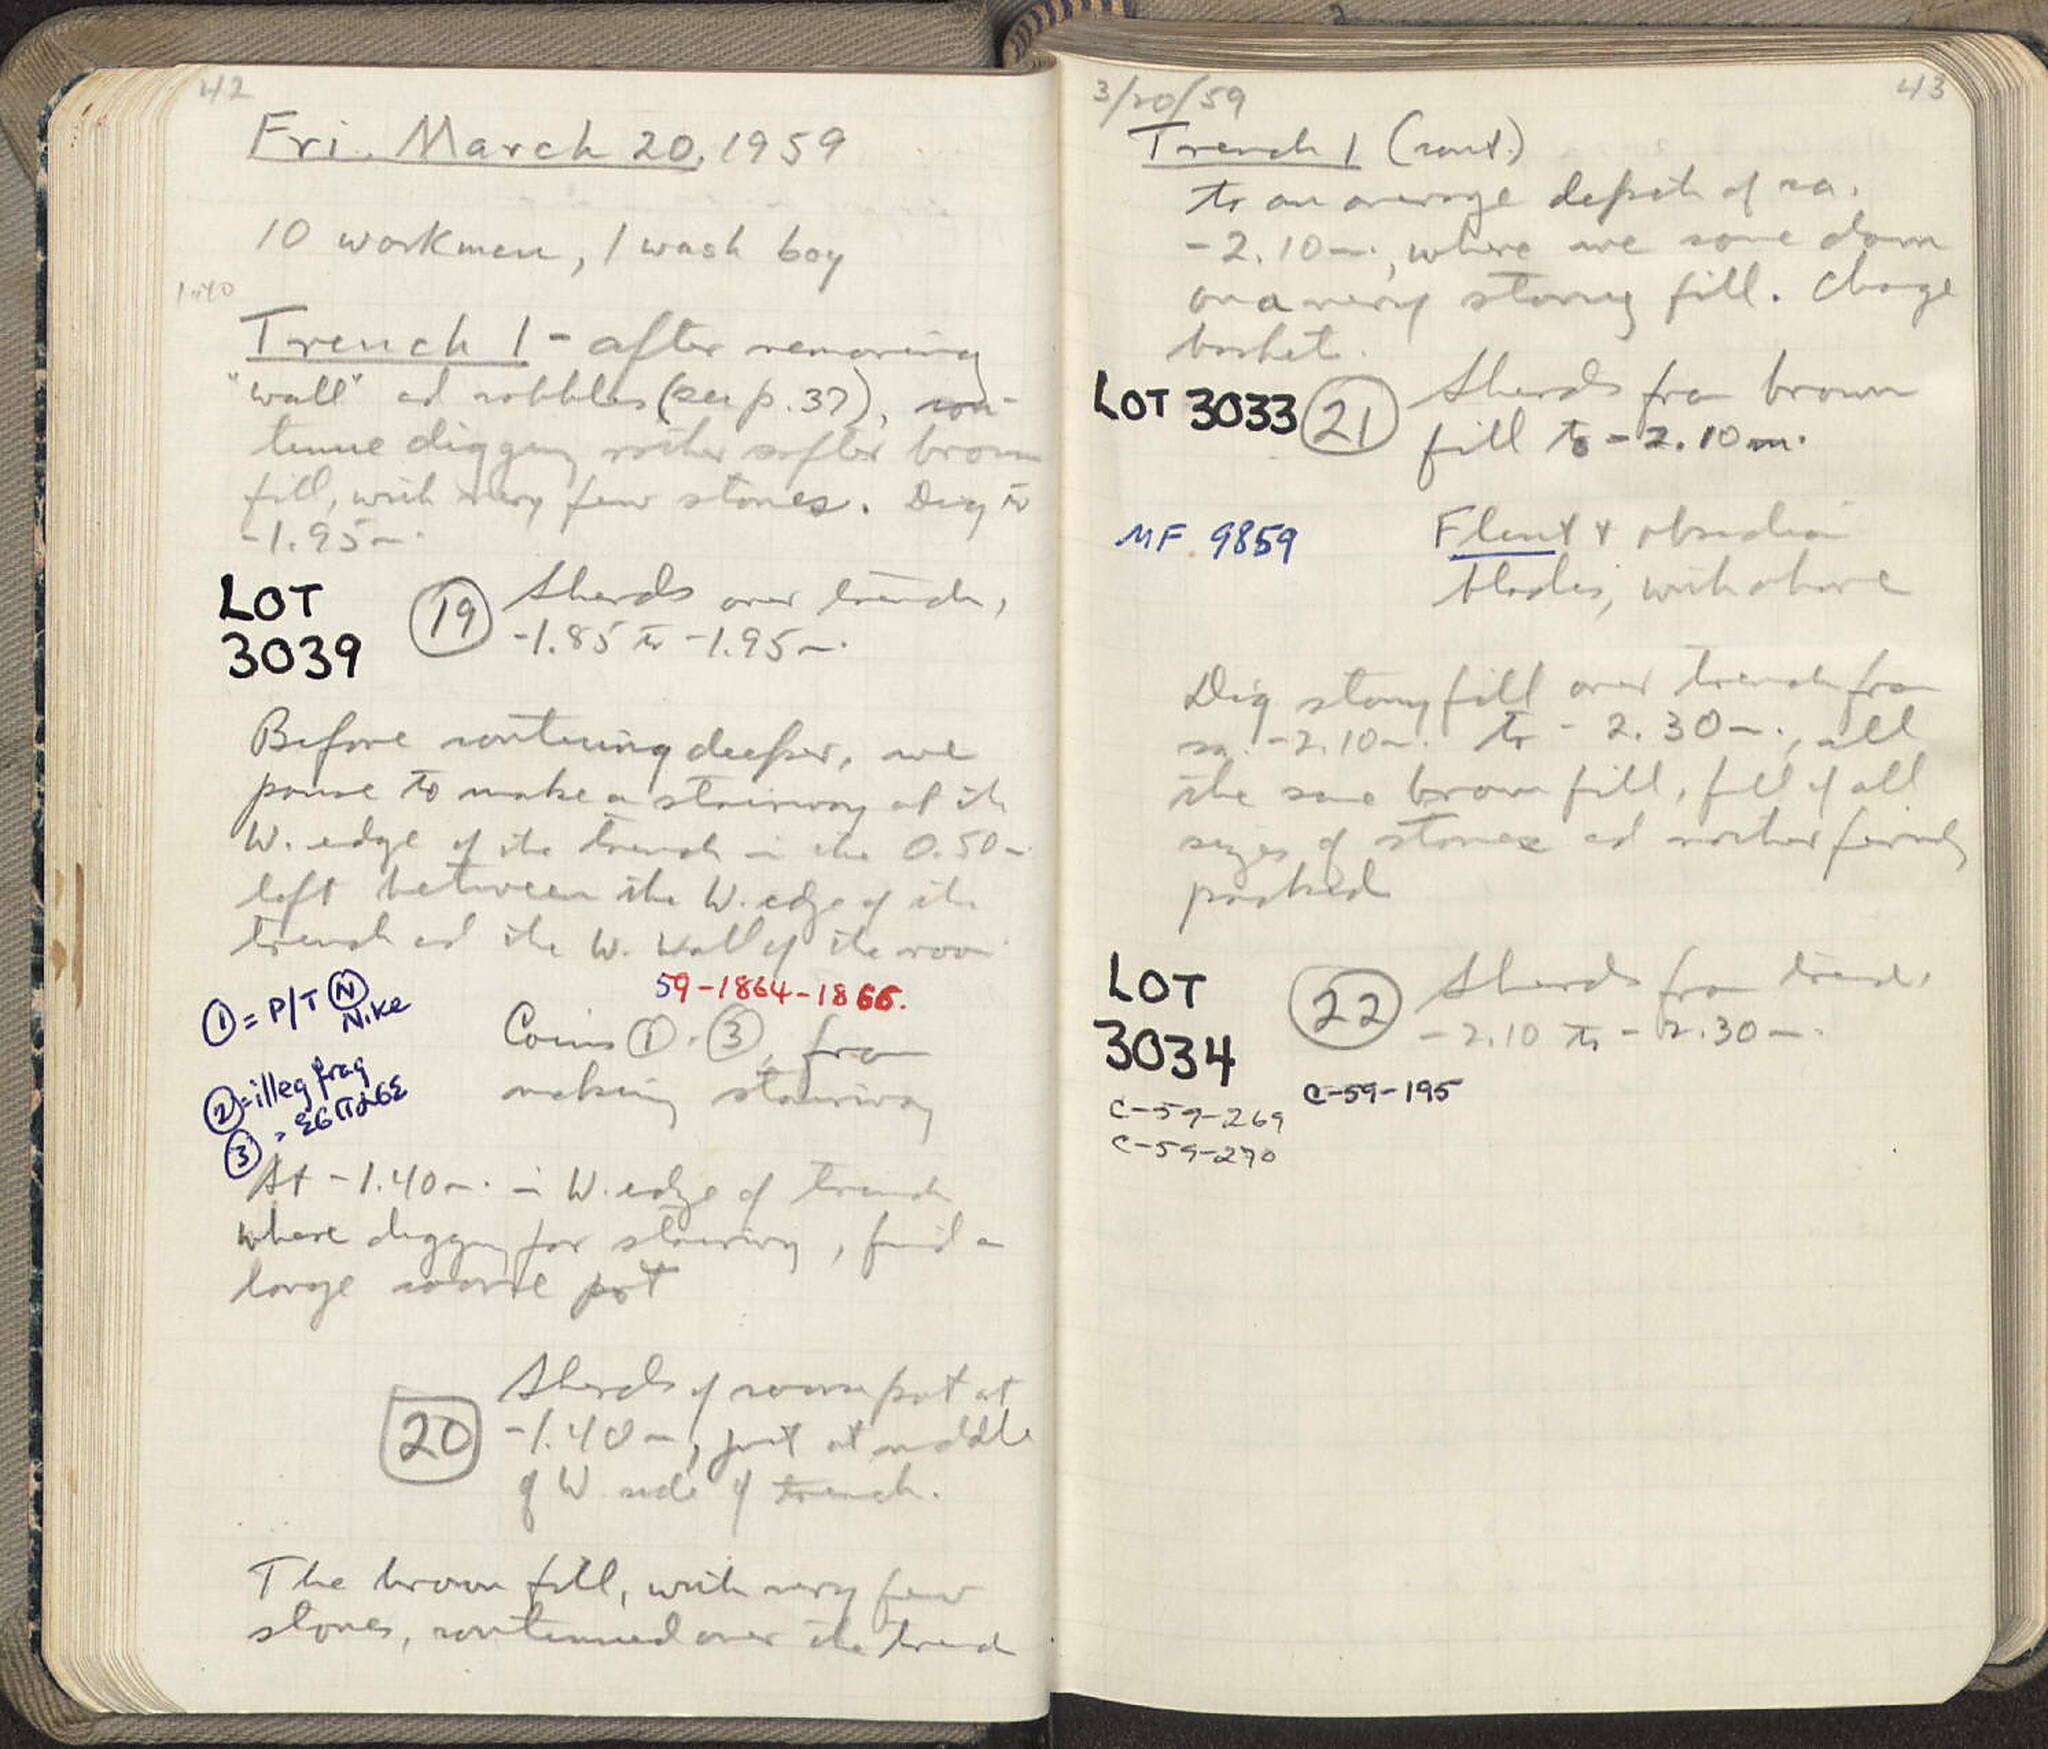 42
Fri. March 20, 1959
10 workmen, 1 wash boy
1:40
Trench 1 - after removing
"wall" and cobbles (see p. 37), con-
tinue digging rather softer brown
fill, with very few stones. Dig to
-1.95m.
LOT
3039
19
Sherds over trench,
-1.85 to -1.95m.
Before continuing deeper, we
pause to make a stairway at the
W. edge of the trench in the 0.50m
left between the W. edge of the
trench and the W. wall of the room
59-1864-1866.
① = P/T Ⓝ
Nike
Coins ① - ③, from
making stairway
② = illeg frag
③ =
At -1.40m. in W. edge of trench
where digging for stairway, find a
large coarse pot
20
Sherds of coarse pot at
-1.40m, just at middle
of W side of trench.
The brown fill, with very few
stones, continued over the trench
3/20/59
43
Trench 1 (cont.)
to an average depth of ca.
-2.10m., where we come down
on a very stoney fill. Change
basket.
LOT 3033
21
Sherds from brown
fill to -2.10m.
MF. 9859
Flint + obsidian
blades, with above
Dig stony fill over trench from
ca. -2.10m. to -2.30m., all
the same brown fill, full of all
sizes of stones and rather firmly
packed
LOT
3034
22
Sherds from trench
-2.10 to -2.30m.
C-59-195
C-59-269
C-59-270